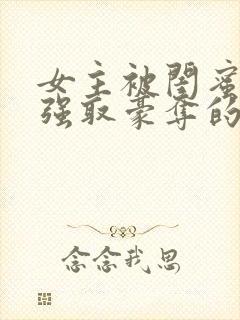 女主被闺蜜
强取豪夺的
念念我思